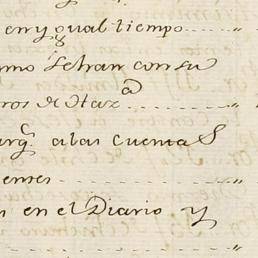 en ygual tiempo
Letran con su
ros de Haz.ᵃ
arg.ᵗ alas cuentas
entes
en el Diario y